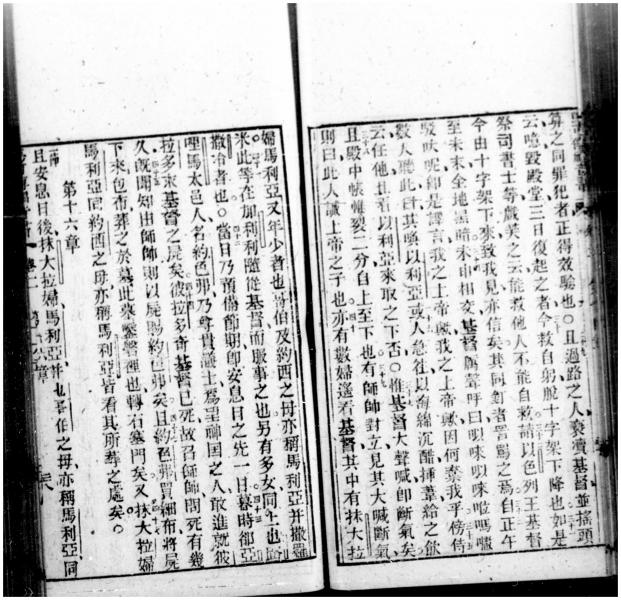 算之同罪犯者正得效驗也○且過路之人褻瀆基督並搖頭
云噫毀殿堂三日復起之者今救自躬脫十字架下降也如是
祭司書士等戲笑之云能救他人不能自救請以色列王基督
今由十字架下來致我見亦信矣其同釘者詈罵之焉自正午
至未末全地暗未申相交基督厲聲呼曰唻唻啦嗎
呔呢卽是譯言我之上帝歟我之上帝歟因何棄我乎傍侍
數人聽此曰其喚以利亞或人急往以海絲沉醋插葦給之飲
云任他且看以利亞來取之下否○惟基督大聲喊卽斷氣矣
且殿中帳帷裂二分自上至下也有師師對立見其大喊斷氣
則曰此人誠上帝之子也亦有數婦遙看基督其中有抹大拉
婦馬利亞又年少者也哥伯及約西之母亦稱馬利亞并撒羅
米此等在加利利隨從基督而服事之也另有多女同上也路
撒冷者也○當日乃預備節期卽安息日之先一日暮時卽亞
哩馬太邑人名約色弗乃尊貴議士爲望神國之人敢進就彼
拉多求基督之屍矣彼拉多奇基督已死故召師師問死有幾
久旣聞知由師師則以屍賜約色弗矣且約色弗買細布將屍
下來包布葬之於墓此墓鑿磐裡也轉石墓門矣又抹大拉婦
馬利亞同約西之母亦稱馬利亞皆看其所葬之處矣○
第十六章
且安息日後抹大拉婦馬利亞並也哥伯之母亦稱馬利亞同